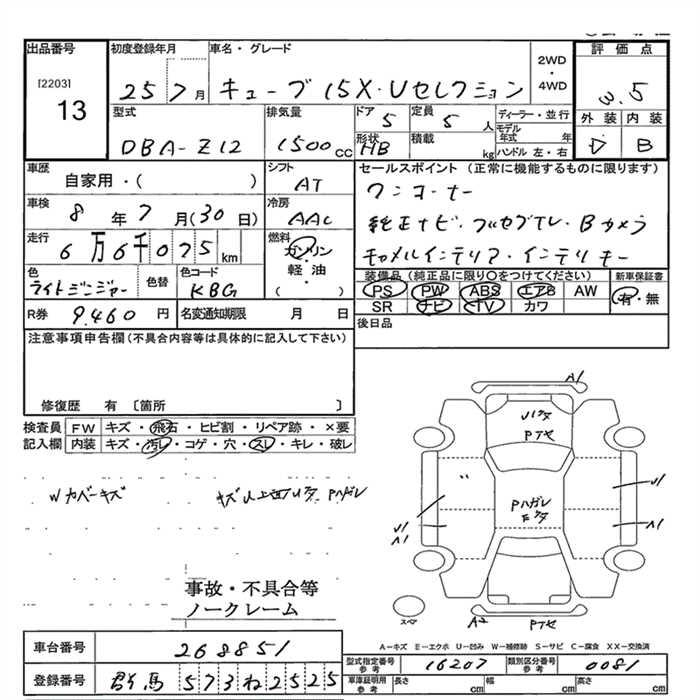 出品番号
[2203]
13
初度登録年月
25 7 月
車名・グレード
キューブ 15X・Vセレクション
2WD
・
4WD
評価点
3.5
外装 内装
D B
型式
DBA-Z12
排気量
1500 cc
ドア
5
定員
5 人
形状
HB
積載
kg
ディーラー・並行
モデル年式 年
ハンドル 左・右
車歴
自家用・( )
シフト
AT
車検
8 年 7 月 (30 日)
冷房
AAC
走行
6 万 6 千 0 7 5 km
燃料
ガソリン
軽・油
( )
色
ライトジンジャー
色替
色コード
KBG
R券
9.460 円
名変通知期限
月 日
セールスポイント(正常に機能するものに限ります)
ワンオーナー
純正ナビ・フルセグTV・Bカメラ
キャメルインテリア・インテリキー
装備品(純正品に限り○をつけてください)
新車保証書
PS PW ABS エアB AW
SR ナビ TV カワ
有・無
後日品
注意事項申告欄(不具合内容等は具体的に記入して下さい)
修復歴 有 〔箇所 〕
検査員記入欄
FW キズ・飛石・ヒビ割・リペア跡・×要
内装 キズ・汚レ・コゲ・穴・スレ・キレ・破レ
Wカバーキズ
キズU上面U多 Pハガレ
事故・不具合等
ノークレーム
A1
U1多
Pアセ
Pハガレ
E多
U1
A1
U1
A1
スペア
A2
Pアセ
A－キズ E－エクボ U－凹み W－補修跡 S－サビ C－腐食 XX－交換済
車台番号
268851
登録番号
群馬 573 ね 2525
型式指定番号
参考
16207
類別区分番号
参考
0081
車庫証明用
参考
長さ cm
幅 cm
高さ cm